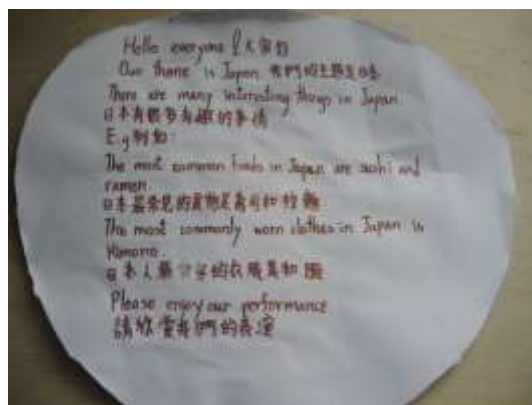 Hello everyone! 大家好
Our theme is Japan 我們的主題是日本
There are many interesting things in Japan.
日本有很多有趣的事情
E.g 例如:
The most common foods in Japan are sushi and
ramen.
日本最常見的食物是壽司和拉麵
The most commonly worn clothes in Japan is
Kimono.
日本人最 的衣服是和服
Please enjoy our performance
請欣賞我們的表演